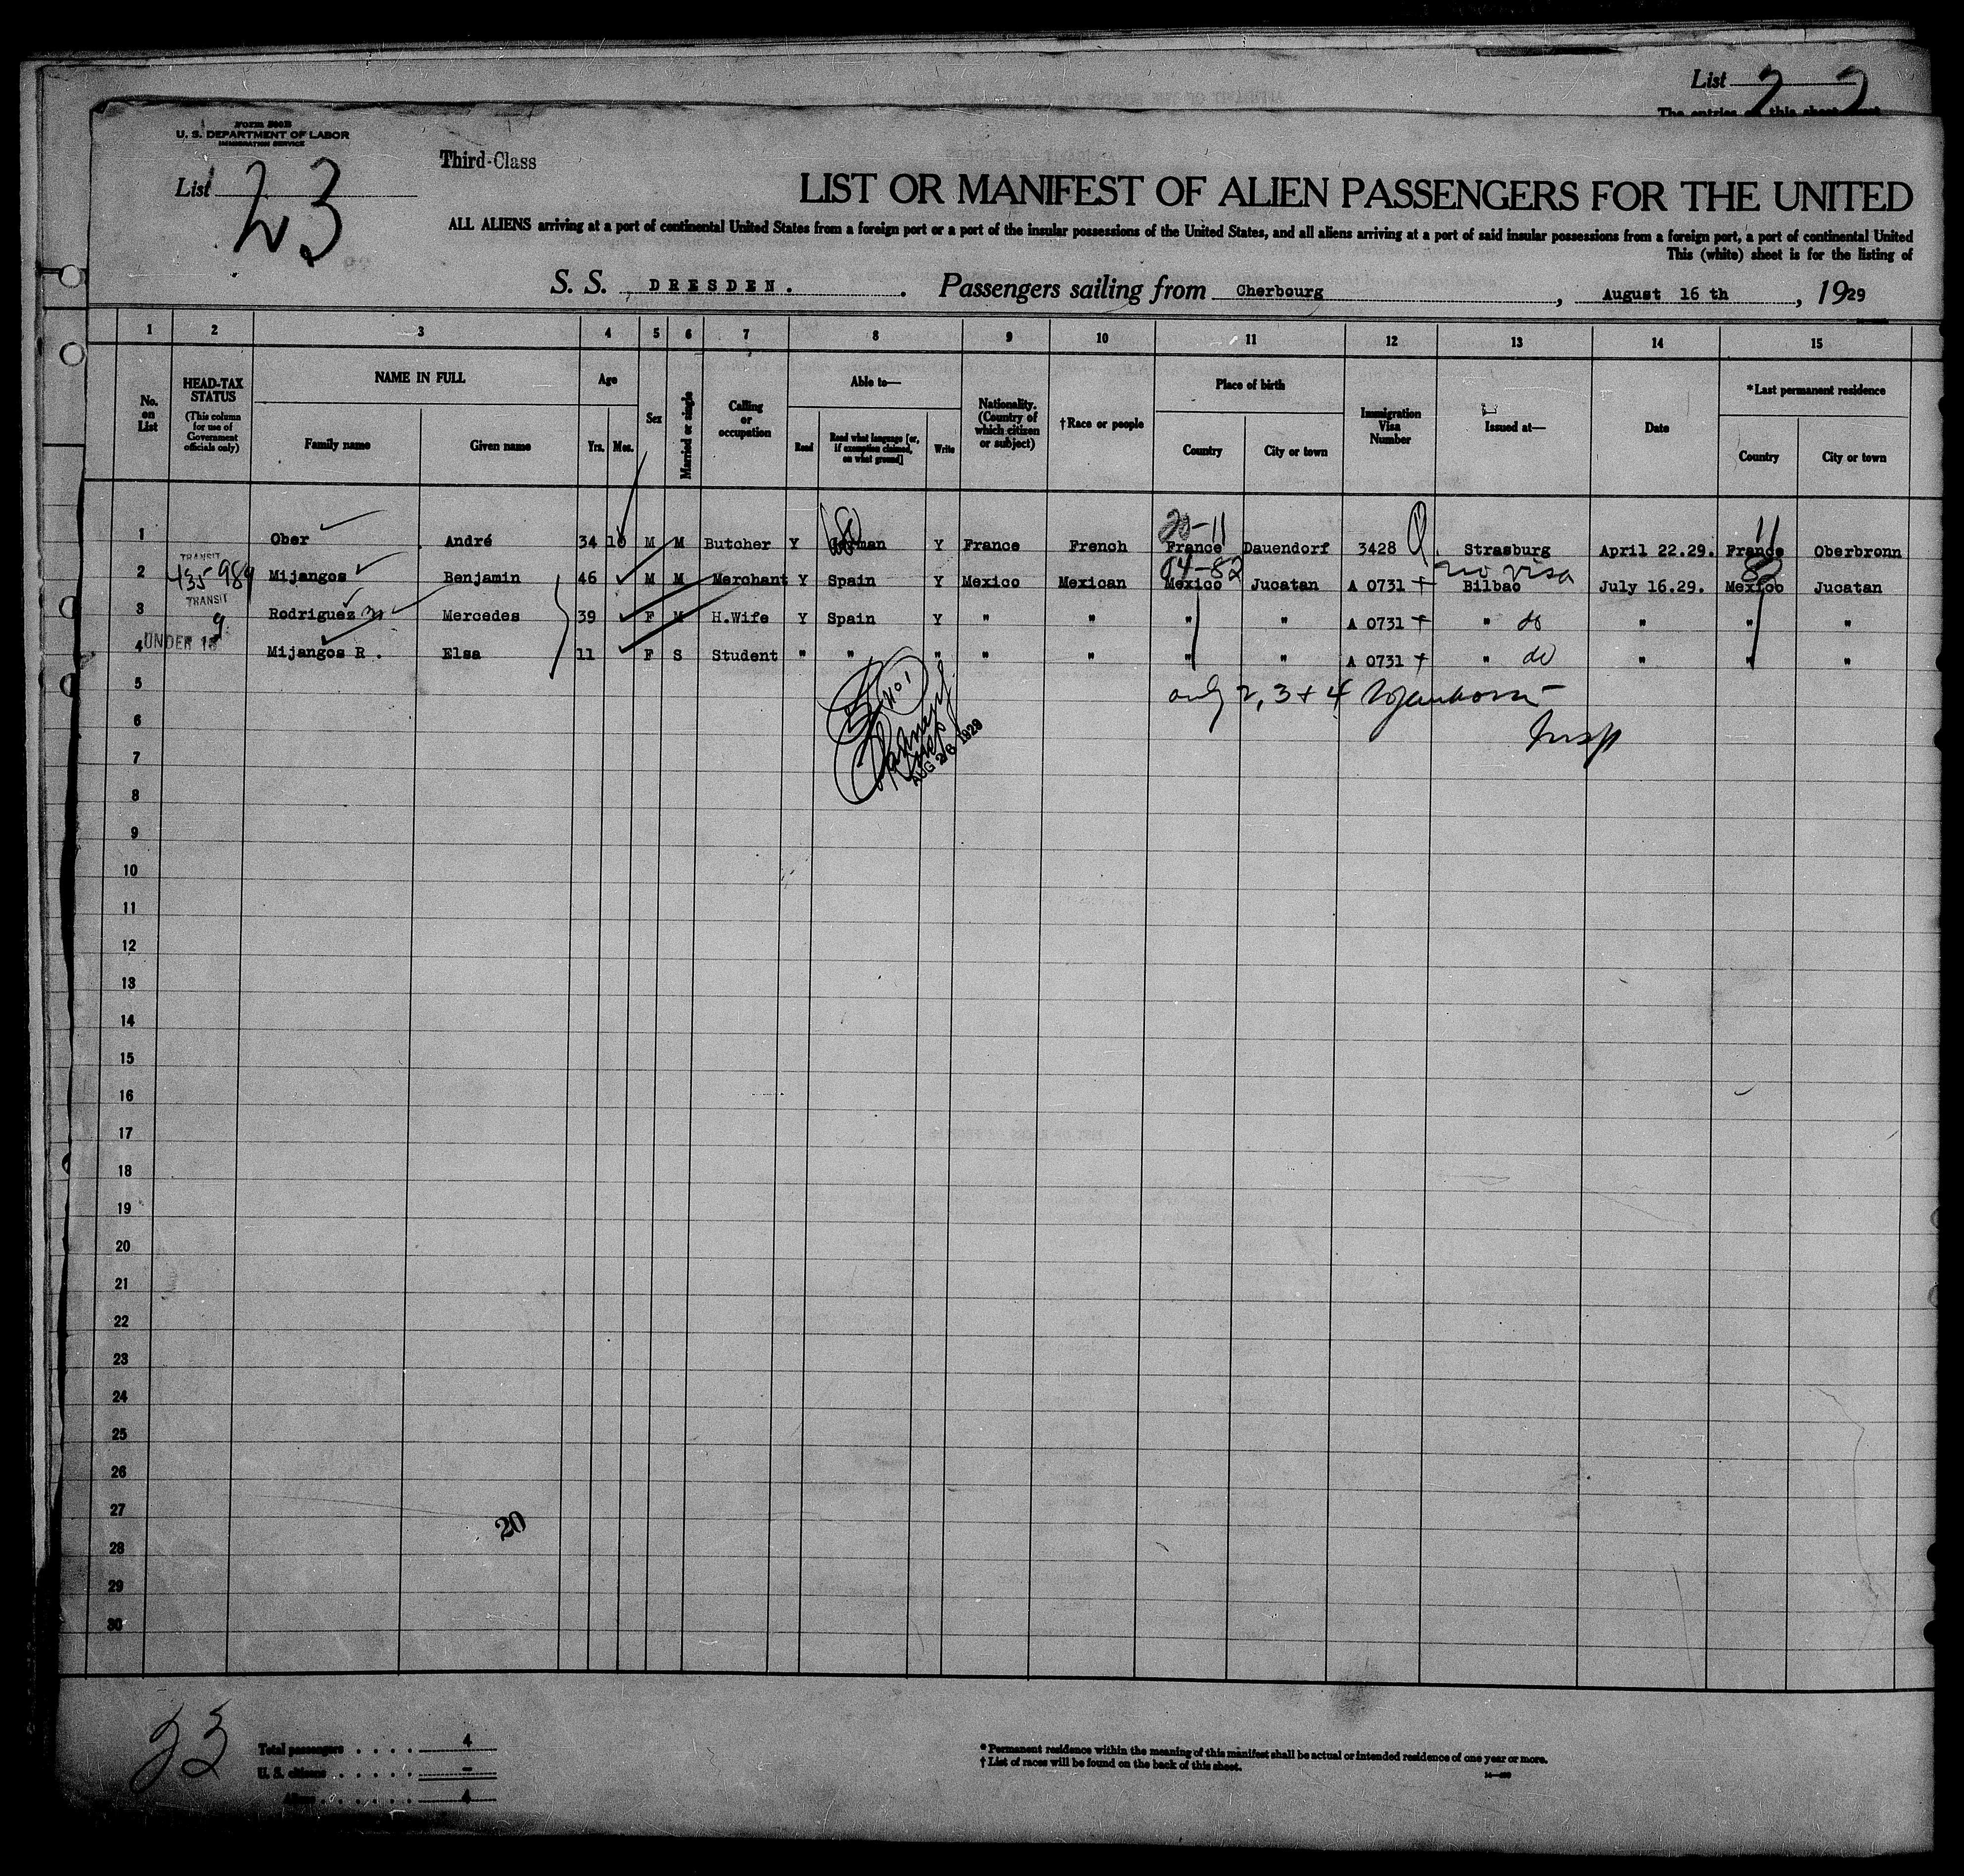 List 2 2
Form 500B
U. S. DEPARTMENT OF LABOR
IMMIGRATION SERVICE
Third-Class
List 23
LIST OR MANIFEST OF ALIEN PASSENGERS FOR THE UNITED
ALL ALIENS arriving at a port of continental United States from a foreign port or a port of the insular possessions of the United States, and all aliens arriving at a port of said insular possessions from a foreign port, a port of continental United
This (white) sheet is for the listing of
S. S. DRESDEN. Passengers sailing from Cherbourg, August 16 th, 1929
1 2 3 4 5 6 7 8 9 10 11 12 13 14 15
No. on List
HEAD-TAX STATUS (This column for use of Government officials only)
NAME IN FULL
Family name Given name
Age
Yrs. Mos.
Sex
Married or single
Calling or occupation
Able to—
Read Read what language [or, if exemption claimed, on what ground] Write
Nationality. (Country of which citizen or subject)
†Race or people
Place of birth
Country City or town
Immigration Visa Number
Issued at—
Date
*Last permanent residence
Country City or town
20-11 11
1 Ober André 34 10 M M Butcher Y German Y France French France Dauendorf 3428 Strasburg April 22.29. France Oberbronn
TRANSIT 435984 04-82 no visa 82
2 Mijangos Benjamin 46 M M Merchant Y Spain Y Mexico Mexican Mexico Jucatan A 0731 + Bilbao July 16.29. Mexico Jucatan
TRANSIT
3 Rodriguez M Mercedes 39 F M H.Wife Y Spain Y " " " " A 0731 + " do " " "
UNDER 16
4 Mijangos R. Elsa 11 F S Student " " " " " " " A 0731 + " do " " "
5
only 2, 3 + 4
No 1
6
Insp
7
Insp
AUG 26 1929
8
9
10
11
12
13
14
15
16
17
18
19
20
21
22
23
24
25
26
27
20
28
29
30
23
Total passengers . . . . 4
U. S. citizens . . . . . -
Aliens . . . . . . 4
* Permanent residence within the meaning of this manifest shall be actual or intended residence of one year or more.
† List of races will be found on the back of this sheet.